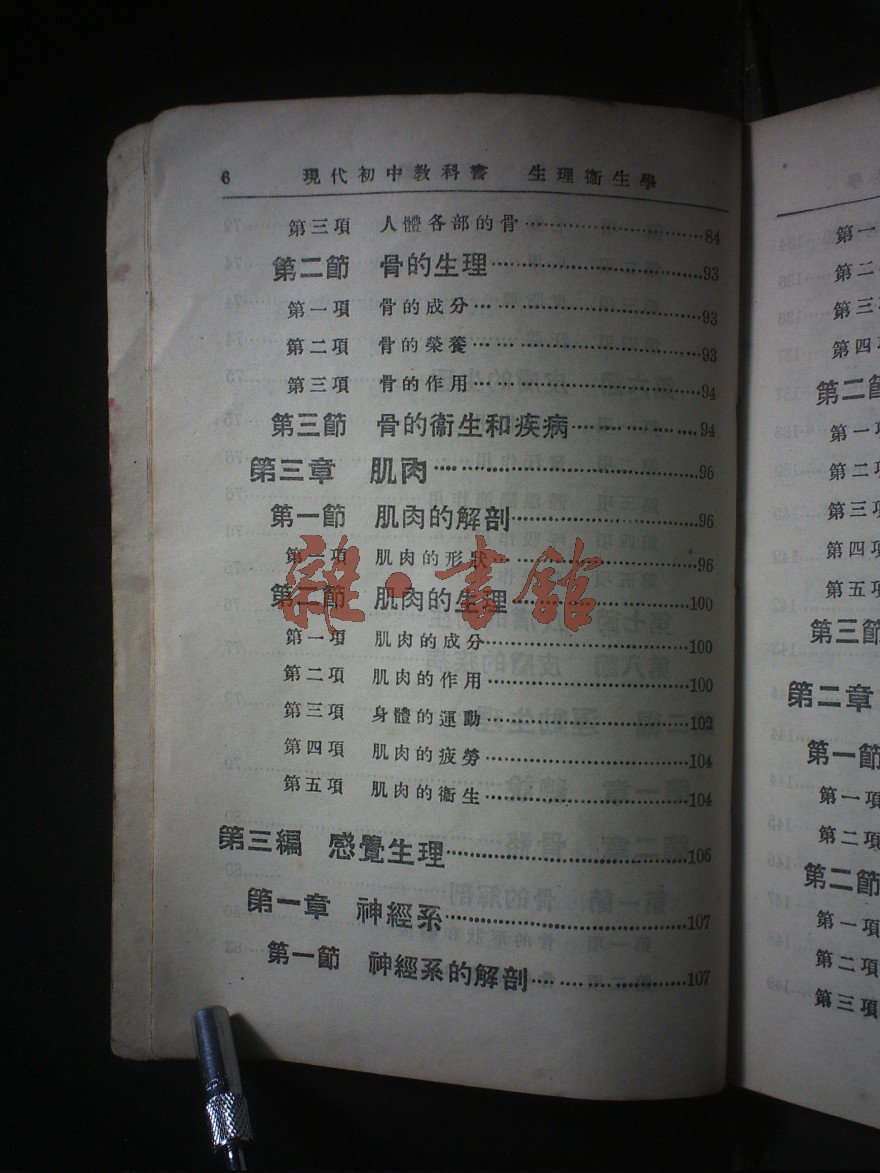 6 現代初中教科書 生理衞生學
第三項 人體各部的骨……………………84
第二節 骨的生理……………………93
第一項 骨的成分……………………93
第二項 骨的榮養……………………93
第三項 骨的作用……………………94
第三節 骨的衞生和疾病……………………94
第三章 肌肉……………………96
第一節 肌肉的解剖……………………96
第一項 肌肉的形狀……………………96
第二節 肌肉的生理……………………100
第一項 肌肉的成分……………………100
第二項 肌肉的作用……………………100
第三項 身體的運動……………………102
第四項 肌肉的疲勞……………………104
第五項 肌肉的衞生……………………104
第三編 感覺生理……………………106
第一章 神經系……………………107
第一節 神經系的解剖……………………107
雜·書館
第一
第二
第三
第四項
第二節
第一
第二項
第三項
第四項
第五項
第三節
第二章
第一節
第一項
第二項
第二節
第一項
第二項
第三項